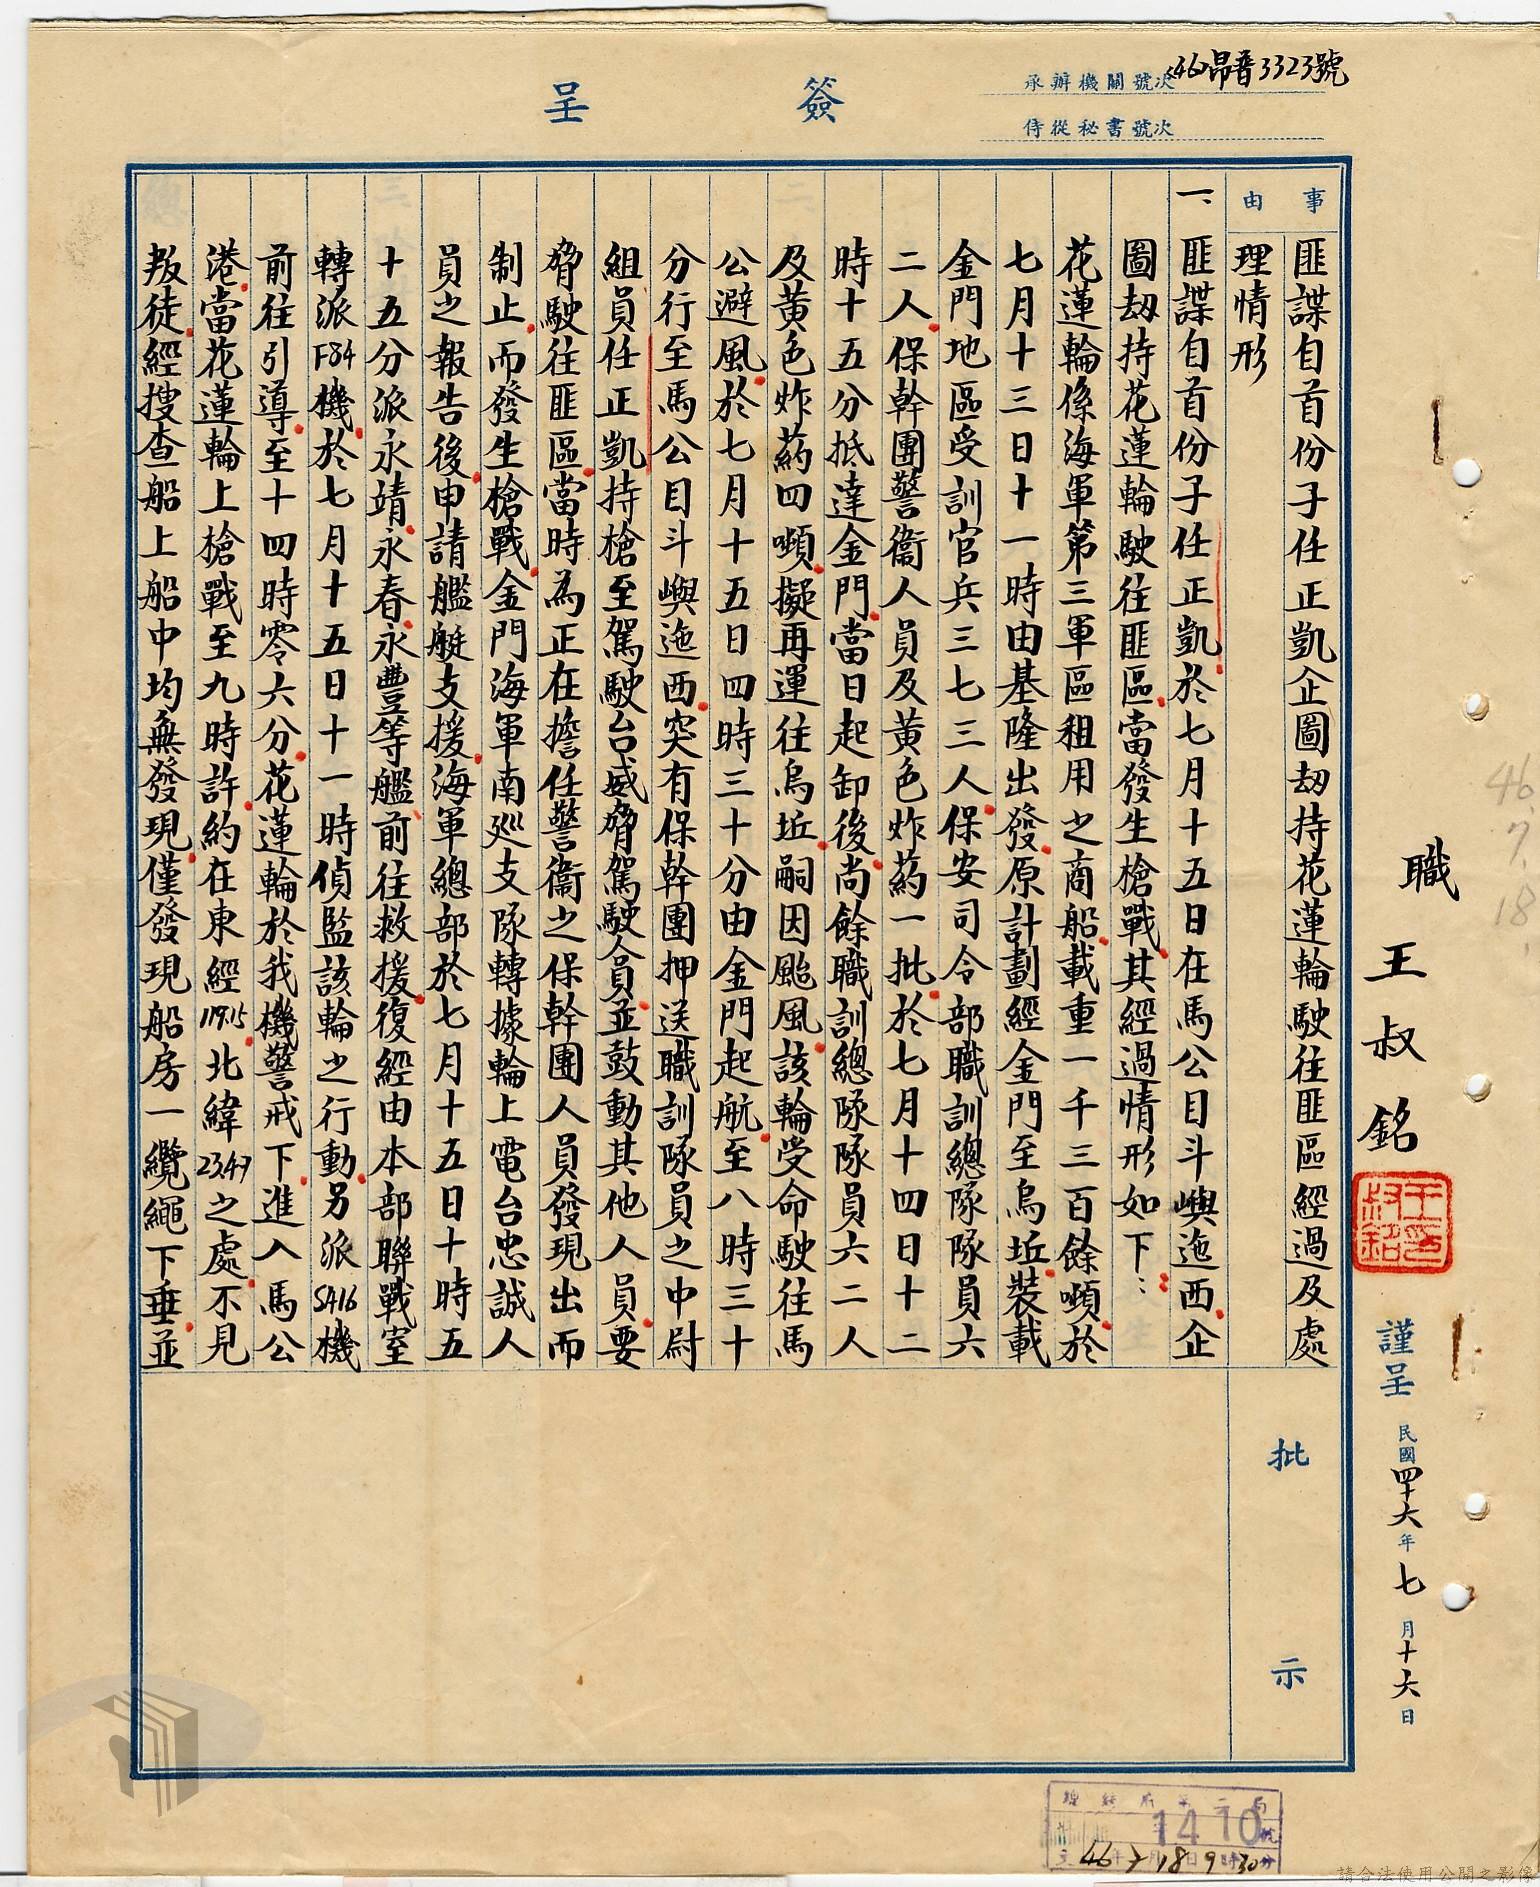 簽呈
承辦機關號次 (46)昂普3323號
侍從秘書號次
職 王叔銘 謹呈 民國四十六年七月十六日
王叔銘印
46.7.18.
事由
匪諜自首份子任正凱企圖刼持花蓮輪駛往匪區經過及處
理情形
一、匪諜自首份子任正凱於七月十五日在馬公目斗嶼迤西企
圖刼持花蓮輪駛往匪區當發生槍戰其經過情形如下：
花蓮輪係海軍第三軍區租用之商船載重一千三百餘噸於
七月十三日十一時由基隆出發原計劃經金門至烏坵裝載
金門地區受訓官兵三七三人保安司令部職訓總隊隊員六
二人保幹團警衞人員及黃色炸葯一批於七月十四日十二
時十五分抵達金門當日起卸後尚餘職訓總隊隊員六二人
及黃色炸葯四噸擬再運往烏坵嗣因颱風該輪受命駛往馬
公避風於七月十五日四時三十分由金門起航至八時三十
分行至馬公目斗嶼迤西突有保幹團押送職訓隊員之中尉
組員任正凱持槍至駕駛台威脅駕駛人員並鼓動其他人員要
脅駛往匪區當時為正在擔任警衞之保幹團人員發現出而
制止而發生槍戰金門海軍南巡支隊轉據輪上電台忠誠人
員之報告後申請艦艇支援海軍總部於七月十五日十時五
十五分派永靖永春永豐等艦前往救援復經由本部聯戰室
轉派F84機於七月十五日十一時偵監該輪之行動另派SA16機
前往引導至十四時零六分花蓮輪於我機警戒下進入馬公
港當花蓮輪上槍戰至九時許約在東經119.15北緯23.49之處不見
叛徒經搜查船上船中均無發現僅發現船房一纜繩下垂並
批示
總統府第二局
1410號
文46年7月18日9時30分
請合法使用公開之影像